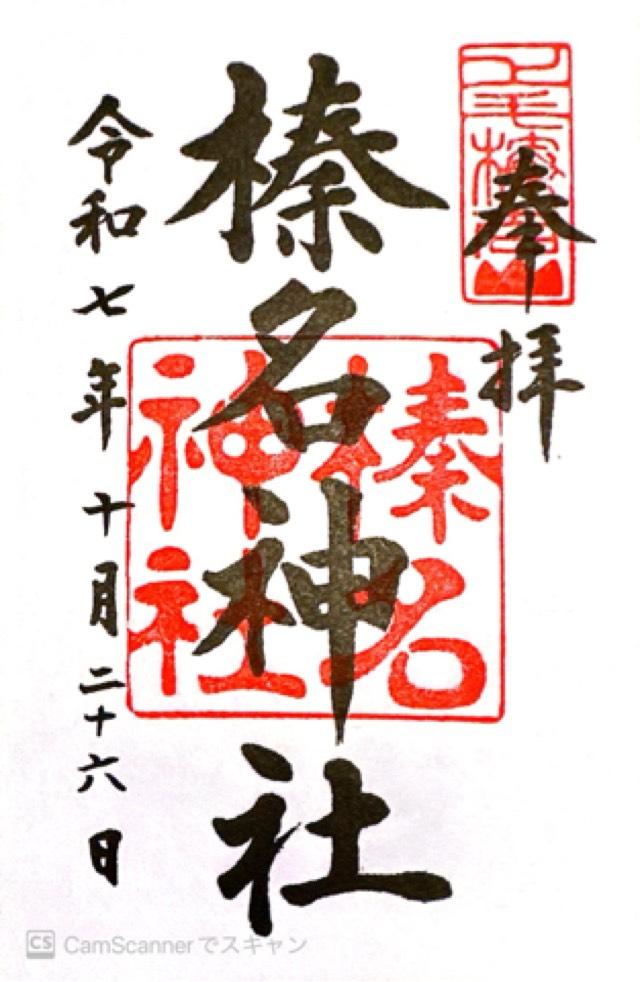 奉拝
榛名神社
令和七年十月二十六日
榛名
神社
CS CamScannerでスキャン